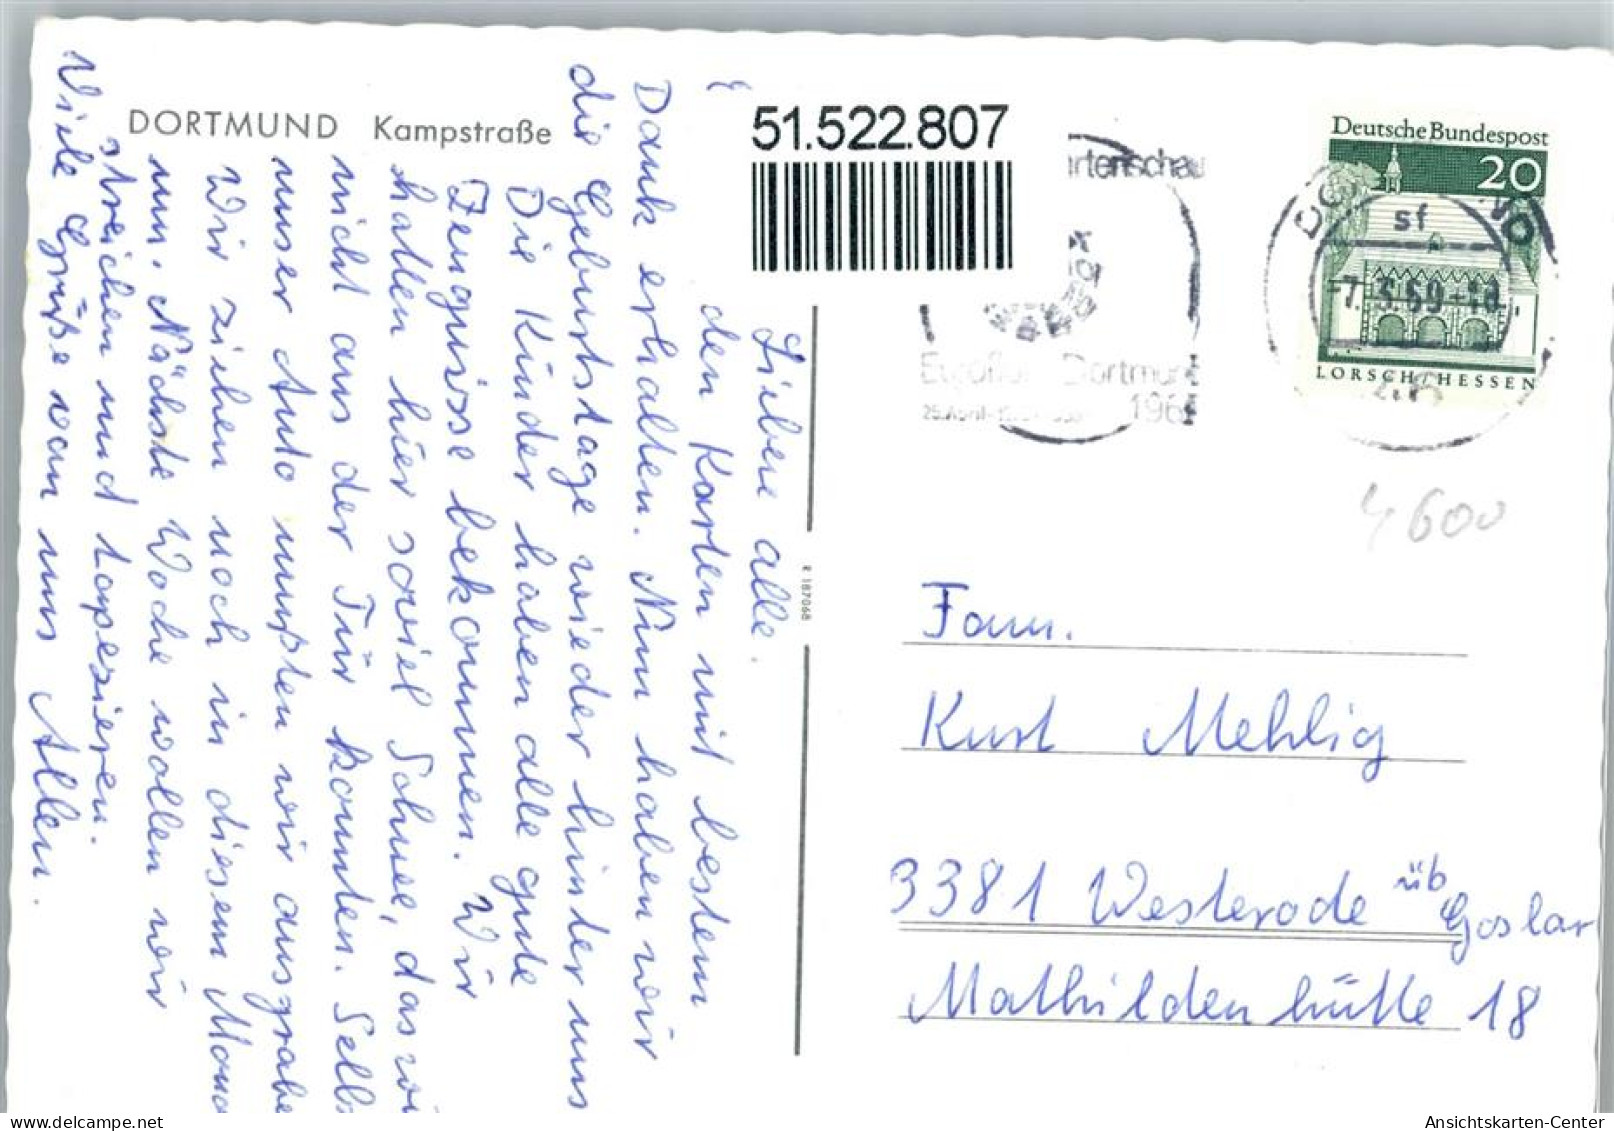 DORTMUND Kampstraße
51.522.807
Lieben alle.
den Karten mit bestem
Dank erhalten. Nun haben wir
die Geburtstage wieder hinter uns
Die Kinder haben alle gute
Zeugnisse bekommen. Wir
hatten hier soviel Schnee, das wi
nicht aus der Tür konnten. Selbs
unser Auto mußten wir ausgrabe
Wir ziehen noch in diesem Mona
um. Nächste Woche wollen wir
streichen und tapezieren.
Viele Grüße von uns Allen.
R 187068
rtenschau
Euroflor Dortmund
196
Deutsche Bundespost
20
LORSCH/HESSEN
sf
-7.3.69-18
46
4600
Fam.
Kurt Mehlig
3381 Westerode üb Goslar
Mathildenhütte 18
Ansichtskarten-Center